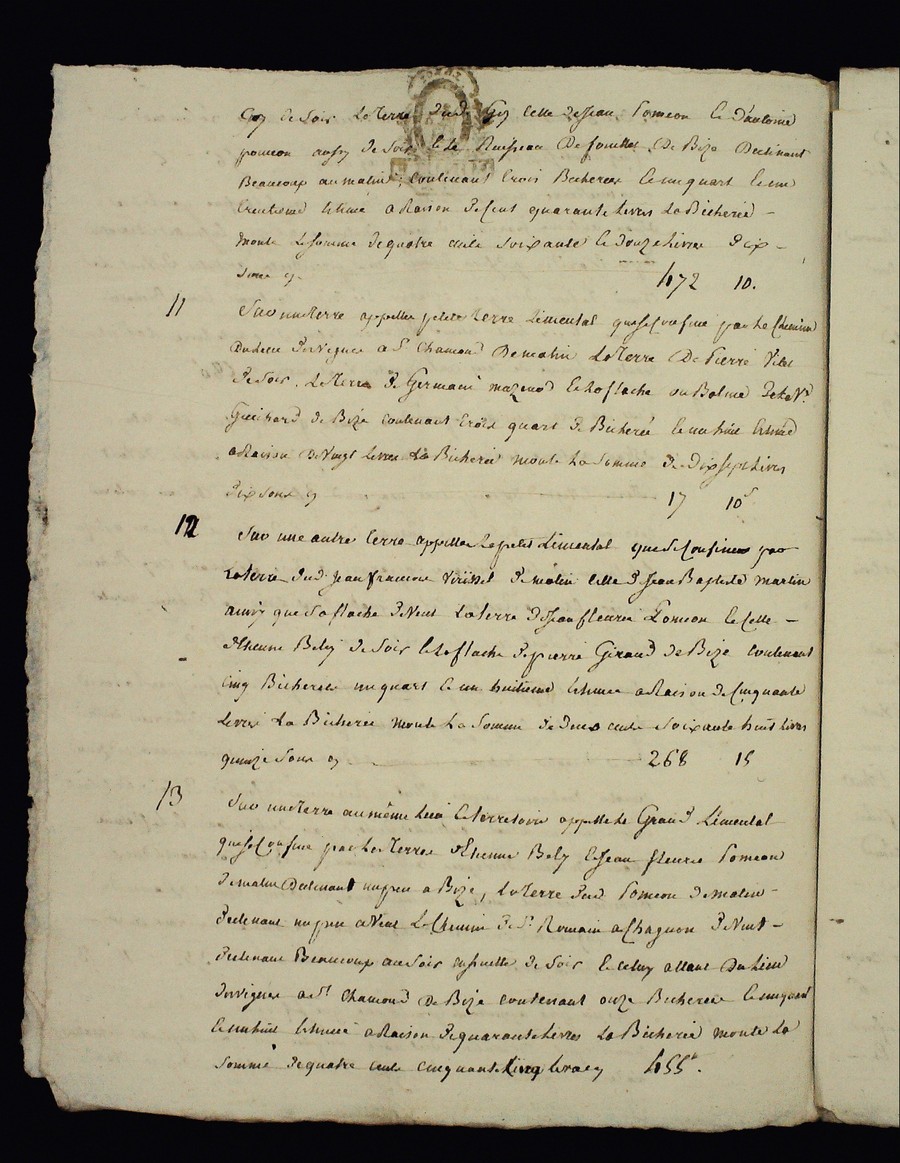 Gey de Soir La Terre dud. Gey celle de Jean Pomeon et d'antoine
pomeon aussy de Soir et le Ruisseau De fouillas De Bize Declinant
Beaucoup au matin; Contenant trois Bicherées et un quart et un
trentieme Estimé a Raison de Cent quarante Livres La Bicherée –
monte La somme de quatre cents soixante et Douze Livres Dix –
sous cy 472 10.
11 Sur une Terre appellée petite Terre Lémental que se Confine par Le Chemin
du Lieu de vignes a St. Chamond De matin La Terre De Pierre
de Soir. La Terre de Germain mazenod et La flache ou Balme de La Ve.
Guichard de Bize contenant trois quart de Bicherée et un huit Estimé
a Raison de Vingt Livres La Bicherée monte La Somme de Dix Sept Livres
dix sous cy 17 10s
12 Sur une autre terre appellée Le petit Lémental que se Confine par
La terre dud. Jean francois de matin celle de Jean Baptiste martin
aussy que Sa flache de Vent La terre de Jean fleurie Pomeon et Celle –
d'Etienne Bely de Soir et La flache de pierre Giraud de Bize Contenant
Cinq Bicherées un quart et un huitieme Estimée a Raison de Cinquante
Livres La Bicherée monte La Somme de Deux cents soixante huit Livres
quinze Sous cy 268 15
13 Sur une Terre au même Lieu et territoire appellé Le Grand Lémental
que se Confine par Les Terres d'Etienne Bely et Jean fleurie Pomeon
de matin Declinant un peu a Bize, La Terre dud. Pomeon de matin –
declinant un peu a Vent Le Chemin de St. Romain a Chagnon de Vent –
declinant Beaucoup au Soir ensuitte de Soir et Celuy allant Du Lieu
des vignes a St. Chamond de Bize Contenant onze Bicherées et un quart
et un huit Estimée a Raison de quarante Livres La Bicherée monte La
Somme de quatre cents cinquante Cinq Livres cy 455#.